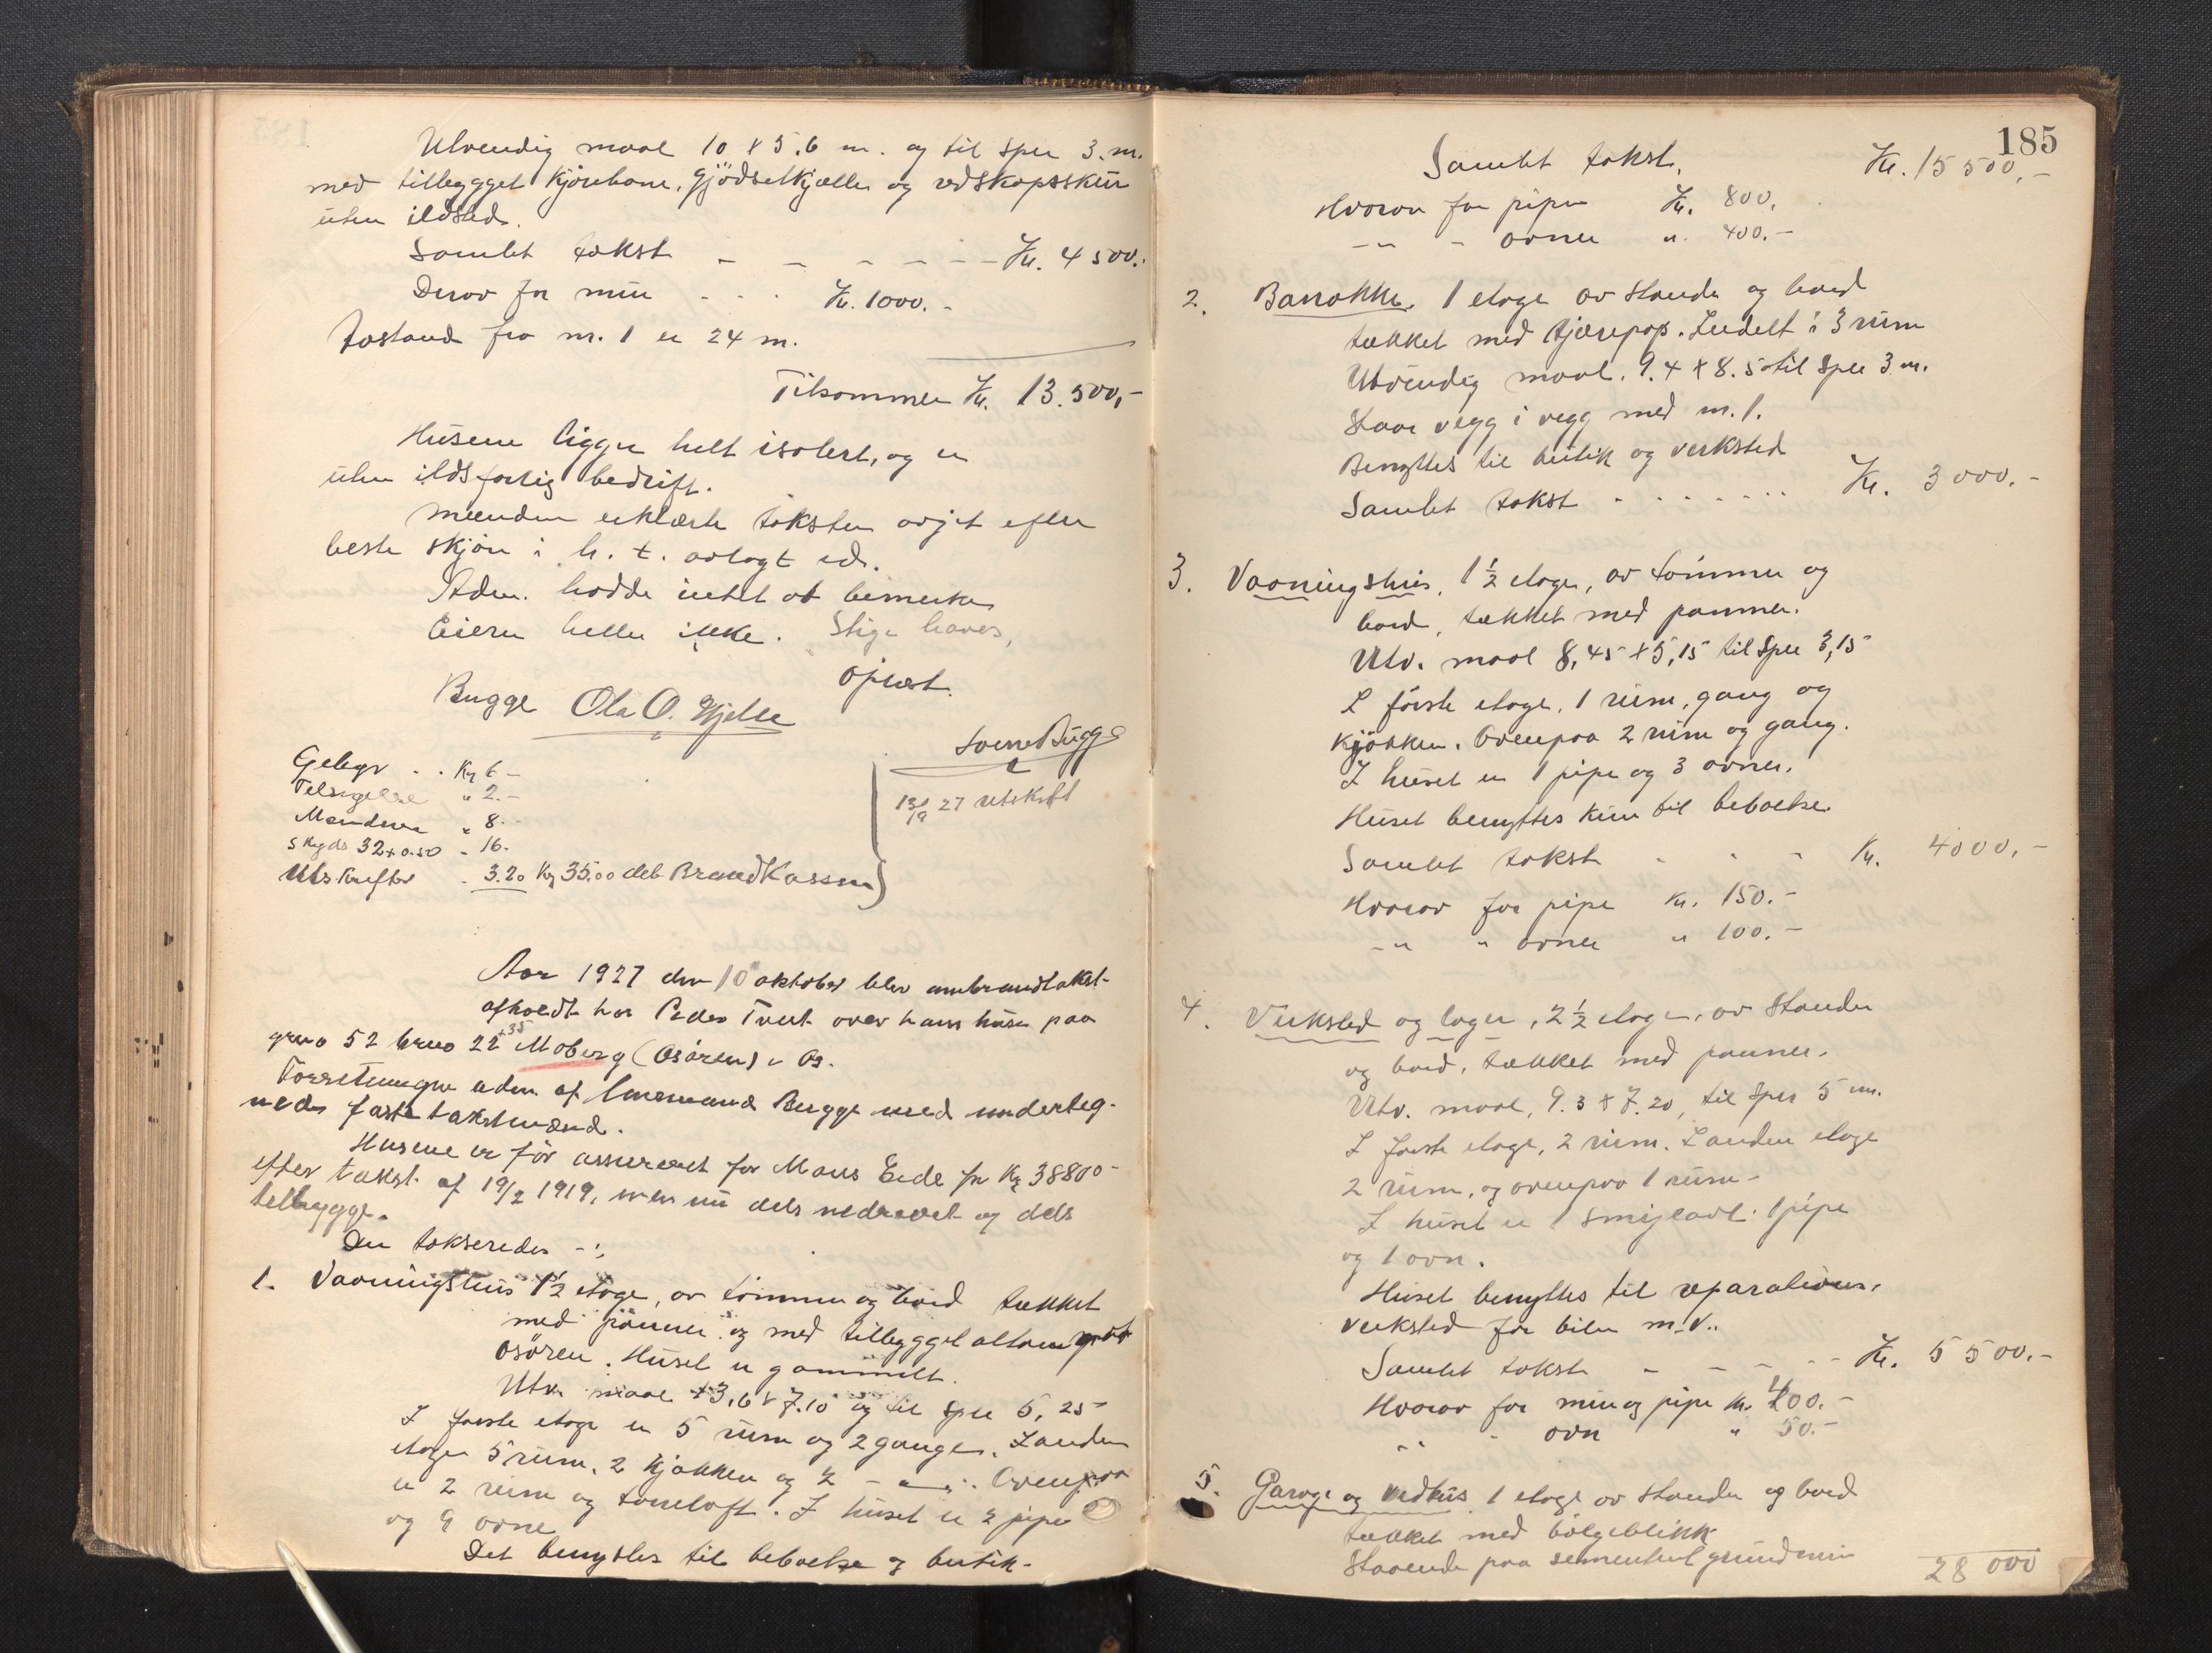 Utvendig maal 10 x 5.6 m. og til sper 3. m.
med tillegget kjörebane, gjödselkjeller og redskapsskur
uten ildsted.
Samlet takst - - - - - - Kr. 4500.-
Derav for mur - - . Kr. 1000.-
Avstand fra nr. 1 er 24 m.
Tilsammen Kr. 13.500,-
Husene ligger helt isolert, og er
uten ildsfarlig bedrift.
Mændene erklærte taksten avgit efter
beste skjön i h. t. avlagt ed.
Adm. hadde intet at bemerke
Eieren heller ikke. Stige haves,
Oplæst.
Bugge Ola O. Hjelle
Bugge
Gebyr . . Kr 6 -
Tilsigelse " 2.-
Mændene " 8.-
Skyds 32 x 0.50 - 16.
Utskrifter . 3.20 Kr 35,00 deb Brandkassen
27 utskrift
Aar 1927 den 10 oktober blev ombrandtakst
afholdt hos Peder Tveit over hans huse paa
gno 52 brno 22 +35 Moberg (Osören) i Os.
Forretningen adm. af lensmand Bugge med underteg-
nede faste takstmænd.
Husene er för assureret for Mons Eide for Kr 38800-
efter takst af 19/2 1919, men nu dels nedrevet og dels
tilbygget.
Der takseredes -:
1. Vaaningshus 1 1/2 etage, av tömmer og bord tækket
med panner og med tillegget altan mot
Osören. Huset er gammelt.
Utv. maal 13,6 x 7.10 og til sper 5,25
I förste etage er 5 rum og 2 ganger. I anden
etage 5 rum, 2 kjökken og 2 - " -. Ovenpaa
er 2 rum og törreloft. I huset er 2 piper
og 9 ovne
Det benyttes til beboelse og butik.
185
Samlet takst. Kr. 15500,-
Hvorav for piper Kr. 800.
-"- - ovner ". 400.-
2. Barakke. 1 etage av stender og bord
tækket med tjærepap. Inndelt i 3 rum
Utvendig maal. 9.4 x 8.5 til sper 3 m.
Staar vegg i vegg med nr. 1.
Benyttes til butik og verksted
Samlet takst - - - - - - Kr. 3000.-
3. Vaaningshus, 1 1/2 etage, av tömmer og
bord, tækket med panner.
Utv. maal 8,45 x 5,15 til sper 3,15
I förste etage, 1 rum, gang og
kjökken. Ovenpaa 2 rum og gang.
I huset er 1 pipe og 3 ovner.
Huset benyttes kun til beboelse.
Samlet takst - - - Kr. 4000,-
Hvorav for pipe Kr. 150.-
-" " ovner " 100.-
4. Verksted og lager, 2 1/2 etage, av stender
og bord, tækket med panner.
Utv. maal, 9.3 x 7.20, til sper 5 m.
I förste etage, 2 rum. I anden etage
2 rum, og ovenpaa 1 rum-
I huset er 1 smijeavl. 1 pipe
og 1 ovn.
Huset benyttes til reparations-
verksted for biler m.v..
Samlet takst - - - - - Kr. 5500.-
Hvorav for mur og pipe Kr. 400.-
-" - ovn " 50.-
5. Garage og vedhus 1 etage av stender og bord
tækket med bölgeblikk
Staaende paa sementert grundmur
28 000